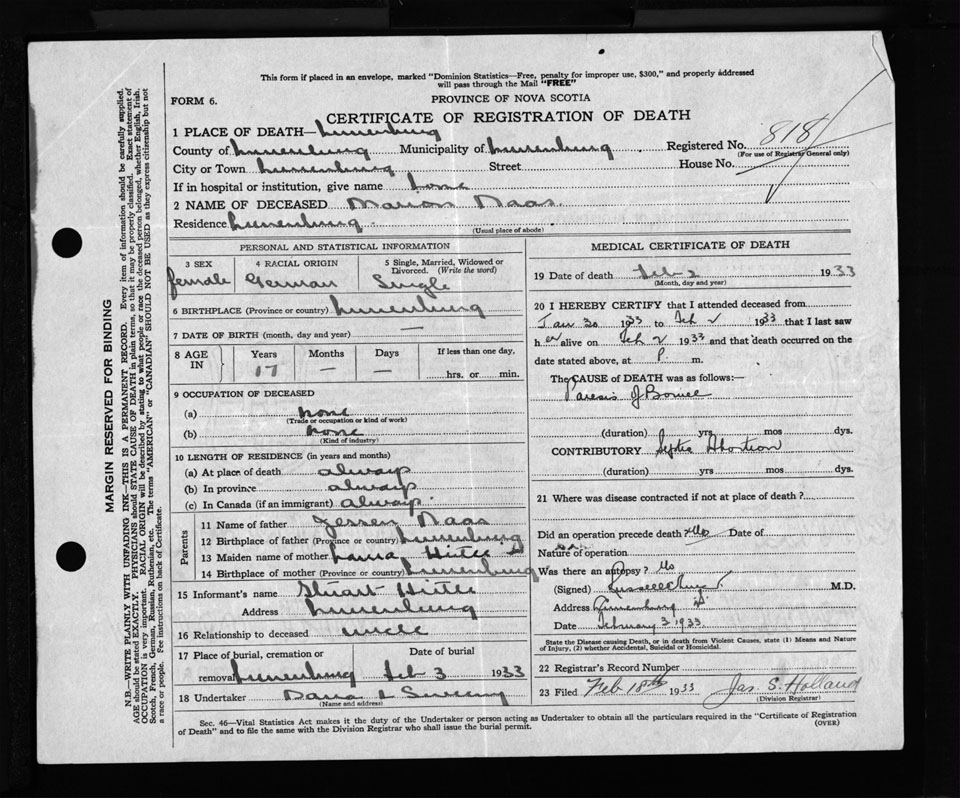 This form if placed in an envelope, marked "Dominion Statistics—Free, penalty for improper use, $300," and properly addressed
will pass through the Mail "FREE"
FORM 6.
PROVINCE OF NOVA SCOTIA
CERTIFICATE OF REGISTRATION OF DEATH
1 PLACE OF DEATH— Lunenburg
County of Lunenburg Municipality of Lunenburg Registered No. 818
(For use of Registrar General only)
City or Town Lunenburg Street House No.
If in hospital or institution, give name home
2 NAME OF DECEASED Marion Naas
Residence Lunenburg
(Usual place of abode)
PERSONAL AND STATISTICAL INFORMATION
3 SEX 4 RACIAL ORIGIN 5 Single, Married, Widowed or
Divorced. (Write the word)
female German Single
6 BIRTHPLACE (Province or country) Lunenburg
7 DATE OF BIRTH (month, day and year) —
8 AGE IN Years Months Days If less than one day,
17 — — hrs. or min.
9 OCCUPATION OF DECEASED
(a) none
(Trade or occupation or kind of work)
(b) none
(Kind of industry)
10 LENGTH OF RESIDENCE (in years and months)
(a) At place of death always
(b) In province always
(c) In Canada (if an immigrant) always
Parents
11 Name of father Naas
12 Birthplace of father (Province or country) Lunenburg
13 Maiden name of mother
14 Birthplace of mother (Province or country) Lunenburg
15 Informant's name Stuart
Address Lunenburg
16 Relationship to deceased uncle
17 Place of burial, cremation or Date of burial
removal Lunenburg Feb 3 1933
18 Undertaker
(Name and address)
MEDICAL CERTIFICATE OF DEATH
19 Date of death Feb 2 1933
(Month, day and year)
20 I HEREBY CERTIFY that I attended deceased from
Jan 30 1933 to Feb 2 1933 that I last saw
her alive on Feb 2 1933 and that death occurred on the
date stated above, at P m.
The CAUSE of DEATH was as follows:—
Paresis of Bowel
(duration) yrs mos dys.
CONTRIBUTORY Septic Abortion
(duration) yrs mos dys.
21 Where was disease contracted if not at place of death?
Did an operation precede death? No Date of
Nature of operation
Was there an autopsy? No
(Signed) M.D.
Address Lunenburg
Date February 3 1933
State the Disease causing Death, or in death from Violent Causes, state (1) Means and Nature
of Injury, (2) whether Accidental, Suicidal or Homicidal.
22 Registrar's Record Number
23 Filed Feb 18th 1933 Jas. S. Holland
(Division Registrar)
Sec. 46—Vital Statistics Act makes it the duty of the Undertaker or person acting as Undertaker to obtain all the particulars required in the "Certificate of Registration
of Death" and to file the same with the Division Registrar who shall issue the burial permit. (OVER)
MARGIN RESERVED FOR BINDING
N.B.—WRITE PLAINLY WITH UNFADING INK—THIS IS A PERMANENT RECORD. Every item of information should be carefully supplied.
AGE should be stated EXACTLY. PHYSICIANS should STATE CAUSE OF DEATH in plain terms, so that it may be properly classified. Exact statement of
OCCUPATION is very important. RACIAL ORIGIN will be described by stating to what people or race the deceased person belonged, whether English, Irish,
Scotch, French, German, Russian, Ruthenian, etc. The terms "AMERICAN" or "CANADIAN" SHOULD NOT BE USED as they express citizenship but not
a race or people. Fee instructions on back of Certificate.